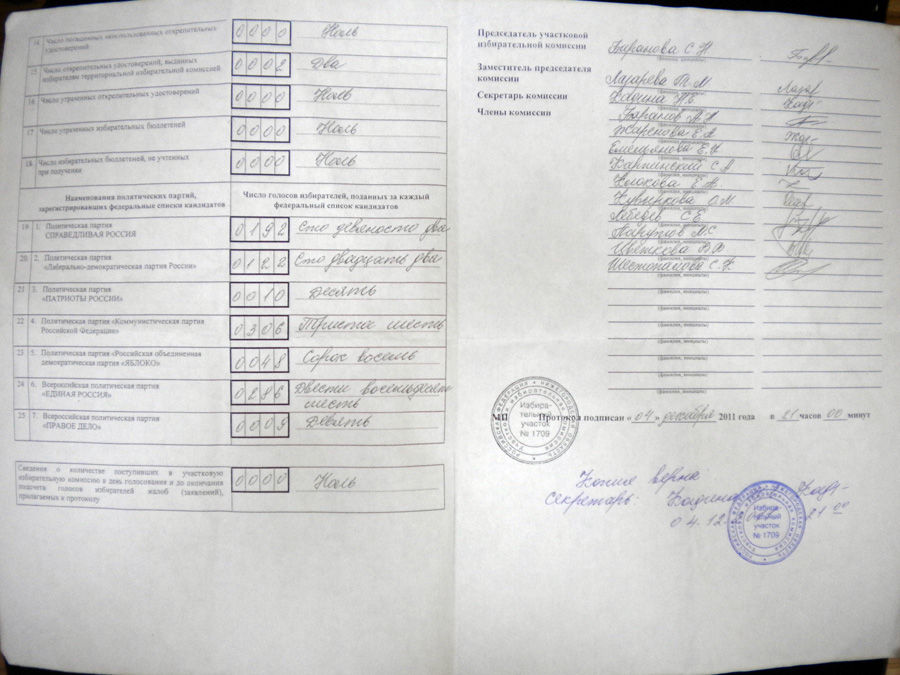 14 Число погашенных неиспользованных открепительных
удостоверений 0000 Ноль
15 Число открепительных удостоверений, выданных
избирателям территориальной избирательной комиссией 0002 Два
16 Число утраченных открепительных удостоверений 0000 Ноль
17 Число утраченных избирательных бюллетеней 0000 Ноль
18 Число избирательных бюллетеней, не учтенных
при получении 0000 Ноль
Наименования политических партий,
зарегистрировавших федеральные списки кандидатов
Число голосов избирателей, поданных за каждый
федеральный список кандидатов
19 1. Политическая партия
СПРАВЕДЛИВАЯ РОССИЯ 0192 Сто девяносто два
20 2. Политическая партия
«Либерально-демократическая партия России» 0122 Сто двадцать два
21 3. Политическая партия
«ПАТРИОТЫ РОССИИ» 0010 Десять
22 4. Политическая партия «Коммунистическая партия
Российской Федерации» 0306 Триста шесть
23 5. Политическая партия «Российская объединенная
демократическая партия «ЯБЛОКО» 0048 Сорок восемь
24 6. Всероссийская политическая партия
«ЕДИНАЯ РОССИЯ» 0286 Двести восемьдесят
шесть
25 7. Всероссийская политическая партия
«ПРАВОЕ ДЕЛО» 0009 Девять
Сведения о количестве поступивших в участковую
избирательную комиссию в день голосования и до окончания
подсчета голосов избирателей жалоб (заявлений),
прилагаемых к протоколу 0000 Ноль
Председатель участковой
избирательной комиссии Баранова С Н
Заместитель председателя
комиссии Лазарева Т М
Секретарь комиссии
Члены комиссии Баранов
Жаренова Е А
Емельянова Е Н
Карпинский С
Волокова Е
О М
Лебедев С Е
М С
Цветкова В Ф
Шестопалова С
(фамилия, инициалы)
(фамилия, инициалы)
(фамилия, инициалы)
(фамилия, инициалы)
(фамилия, инициалы)
(фамилия, инициалы)
(фамилия, инициалы)
МП Протокол подписан « 04 » декабря 2011 года в 21 часов 00 минут
Избира-
тельный
участок
№ 1709
Копия верна
Секретарь:
04.12. 21 00
Избира-
тельный
участок
№ 1709